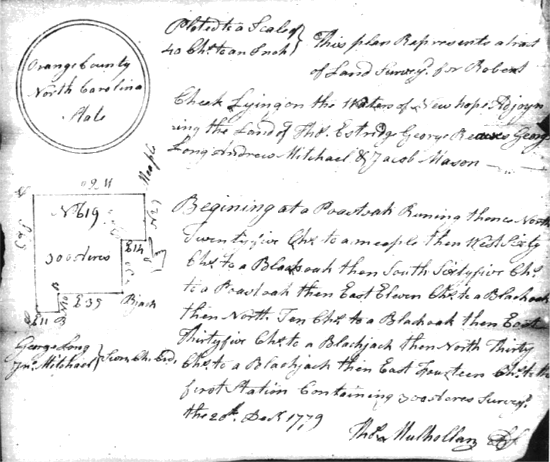 Orange County
North Carolina
State
Ploted to a Scale of
40 Chs. to an Inch
This plan Represents a tract
of Land Survey'd. for Robert
Cheek Lying on the Waters of New hope Adjoyn
ing the Land of Thos. Estridge George Reaves George
Long Andrew Mitchael & Jacob Mason
W 60
Meaple
No 619
300 Acres
E 14
E 35
E 11
Bjack
Begining at a Poastoak Runing thence North
Twentyfive Chs. to a meaple then West Sixty
Chs. to a Blackoak then South Sixtyfive Chs.
to a Poastoak then East Eleven Chs. to a Blackoak
then North Ten Chs. to a Blackoak then East
Thirtyfive Chs. to a Blackjack then North Thirty
Chs. to a Blackjack then East Fourteen Chs. to the
first Station Containing 300 Acres Survey'd.
the 20th. Decr. 1779
George Long
Jno. Mitchael
Thos. Mulhollan